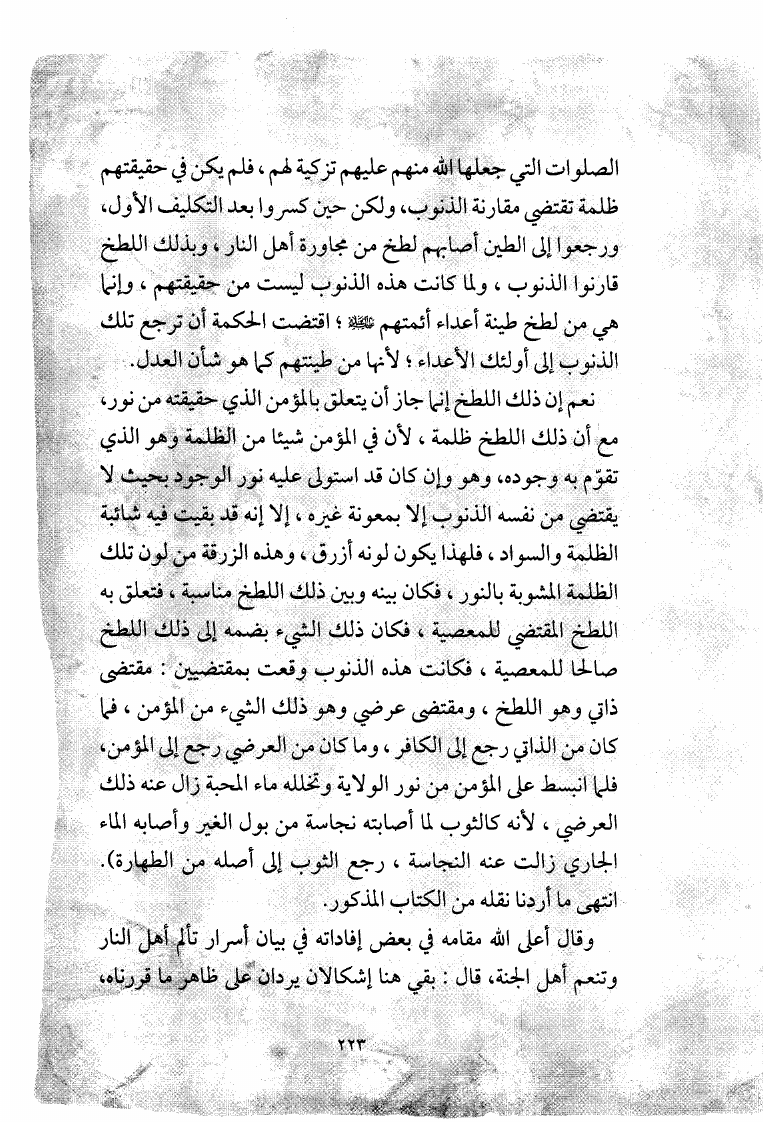 الصلوات التي جعلها الله منهم عليهم تزكية لهم ، فلم يكن في حقيقتهم
ظلمة تقتضي مقارنة الذنوب، ولكن حين كسروا بعد التكليف الأول،
ورجعوا إلى الطين أصابهم لطخ من مجاورة أهل النار ، وبذلك اللطخ
قارنوا الذنوب ، ولما كانت هذه الذنوب ليست من حقيقتهم ، وإنما
هي من لطخ طينة أعداء أئمتهم ؛ اقتضت الحكمة أن ترجع تلك
الذنوب إلى أولئك الأعداء ؛ لأنها من طينتهم كما هو شأن العدل.
نعم إن ذلك اللطخ إنما جاز أن يتعلق بالمؤمن الذي حقيقته من نور،
مع أن ذلك اللطخ ظلمة ، لأن في المؤمن شيئا من الظلمة وهو الذي
تقوّم به وجوده، وهو وإن كان قد استولى عليه نور الوجود بحيث لا
يقتضي من نفسه الذنوب إلا بمعونة غيره ، إلا إنه قد بقيت فيه شائبة
الظلمة والسواد ، فلهذا يكون لونه أزرق ، وهذه الزرقة من لون تلك
الظلمة المشوبة بالنور ، فكان بينه وبين ذلك اللطخ مناسبة ، فتعلق به
اللطخ المقتضي للمعصية ، فكان ذلك الشيء بضمه إلى ذلك اللطخ
صالحا للمعصية ، فكانت هذه الذنوب وقعت بمقتضيين : مقتضى
ذاتي وهو اللطخ ، ومقتضى عرضي وهو ذلك الشيء من المؤمن ، فما
كان من الذاتي رجع إلى الكافر ، وما كان من العرضي رجع إلى المؤمن،
فلما انبسط على المؤمن من نور الولاية وتخلله ماء المحبة زال عنه ذلك
العرضي ، لأنه كالثوب لما أصابته نجاسة من بول الغير وأصابه الماء
الجاري زالت عنه النجاسة ، رجع الثوب إلى أصله من الطهارة).
انتهى ما أردنا نقله من الكتاب المذكور.
وقال أعلى الله مقامه في بعض إفاداته في بيان أسرار تألم أهل النار
وتنعم أهل الجنة، قال : بقي هنا إشكالان يردان على ظاهر ما قررناه،
٢٢٣